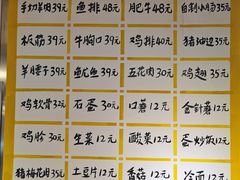 手切羊肉39元 鱼排48元 肥牛48元 自制小肠35元
板筋39元 牛胸口39元 鸡排40元 猪油边35元
羊腰子39元 鱿鱼39元 五花肉30元 鸡翅35元
鸡软骨32元 石蛋30元 口蘑12元 金针蘑12元
鸡胗30元 生菜12元 酸菜12元 蛋炒饭12元
猪梅花肉35元 土豆片12元 香菇12元 冷面12元